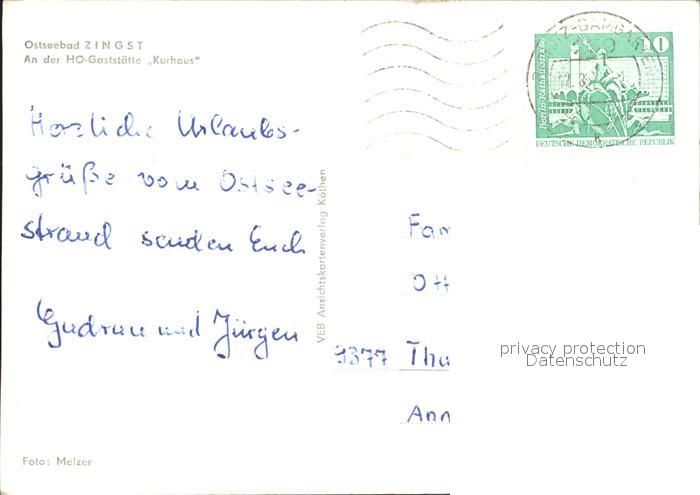 Ostseebad ZINGST
An der HO-Gaststätte „Kurhaus"
Herzliche Urlaubs-
grüße vom Ostsee-
strand senden Euch
Gudrun und Jürgen
Foto: Melzer
VEB Ansichtskartenverlag Köthen
10
Berlin, Rathausstraße
DEUTSCHE DEMOKRATISCHE REPUBLIK
Fam
Ott
9377 Thu
Ann
privacy protection
Datenschutz